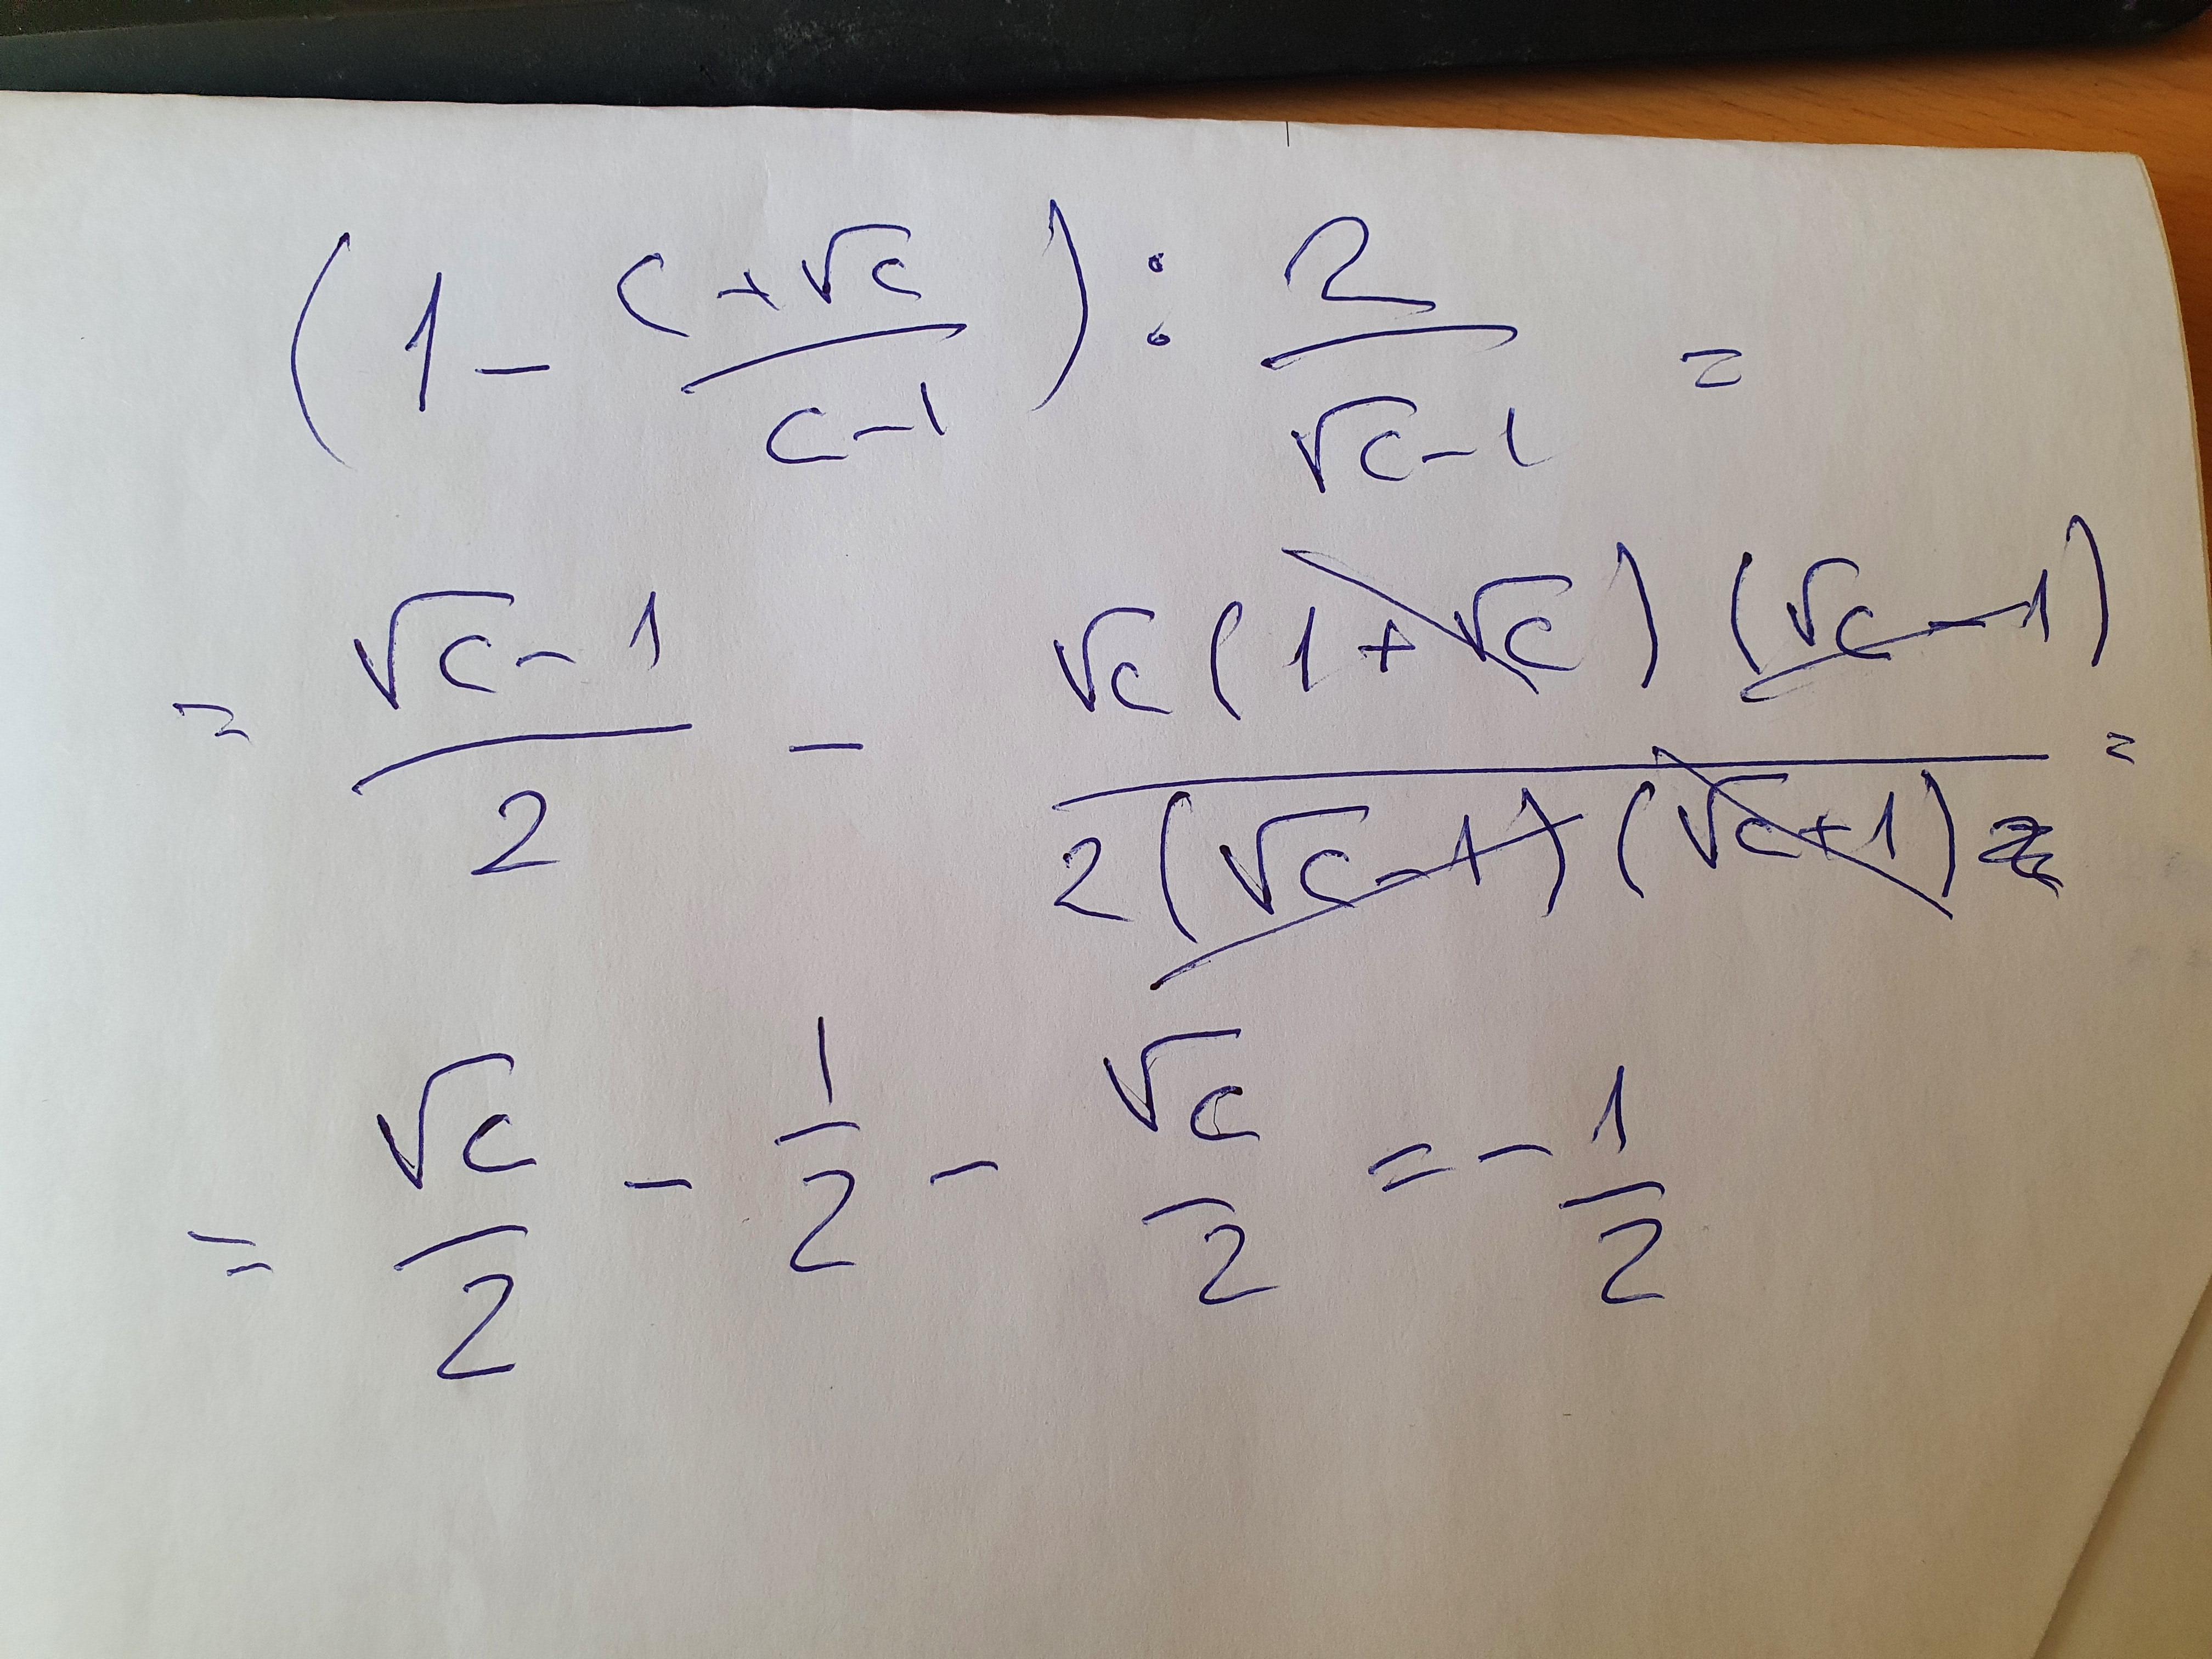 (1 - (c+√c)/(c-1)) : 2/(√c-1) =
= (√c-1)/2 - √c(1+√c)(√c-1)/2(√c-1)(√c+1) =
= √c/2 - 1/2 - √c/2 = -1/2